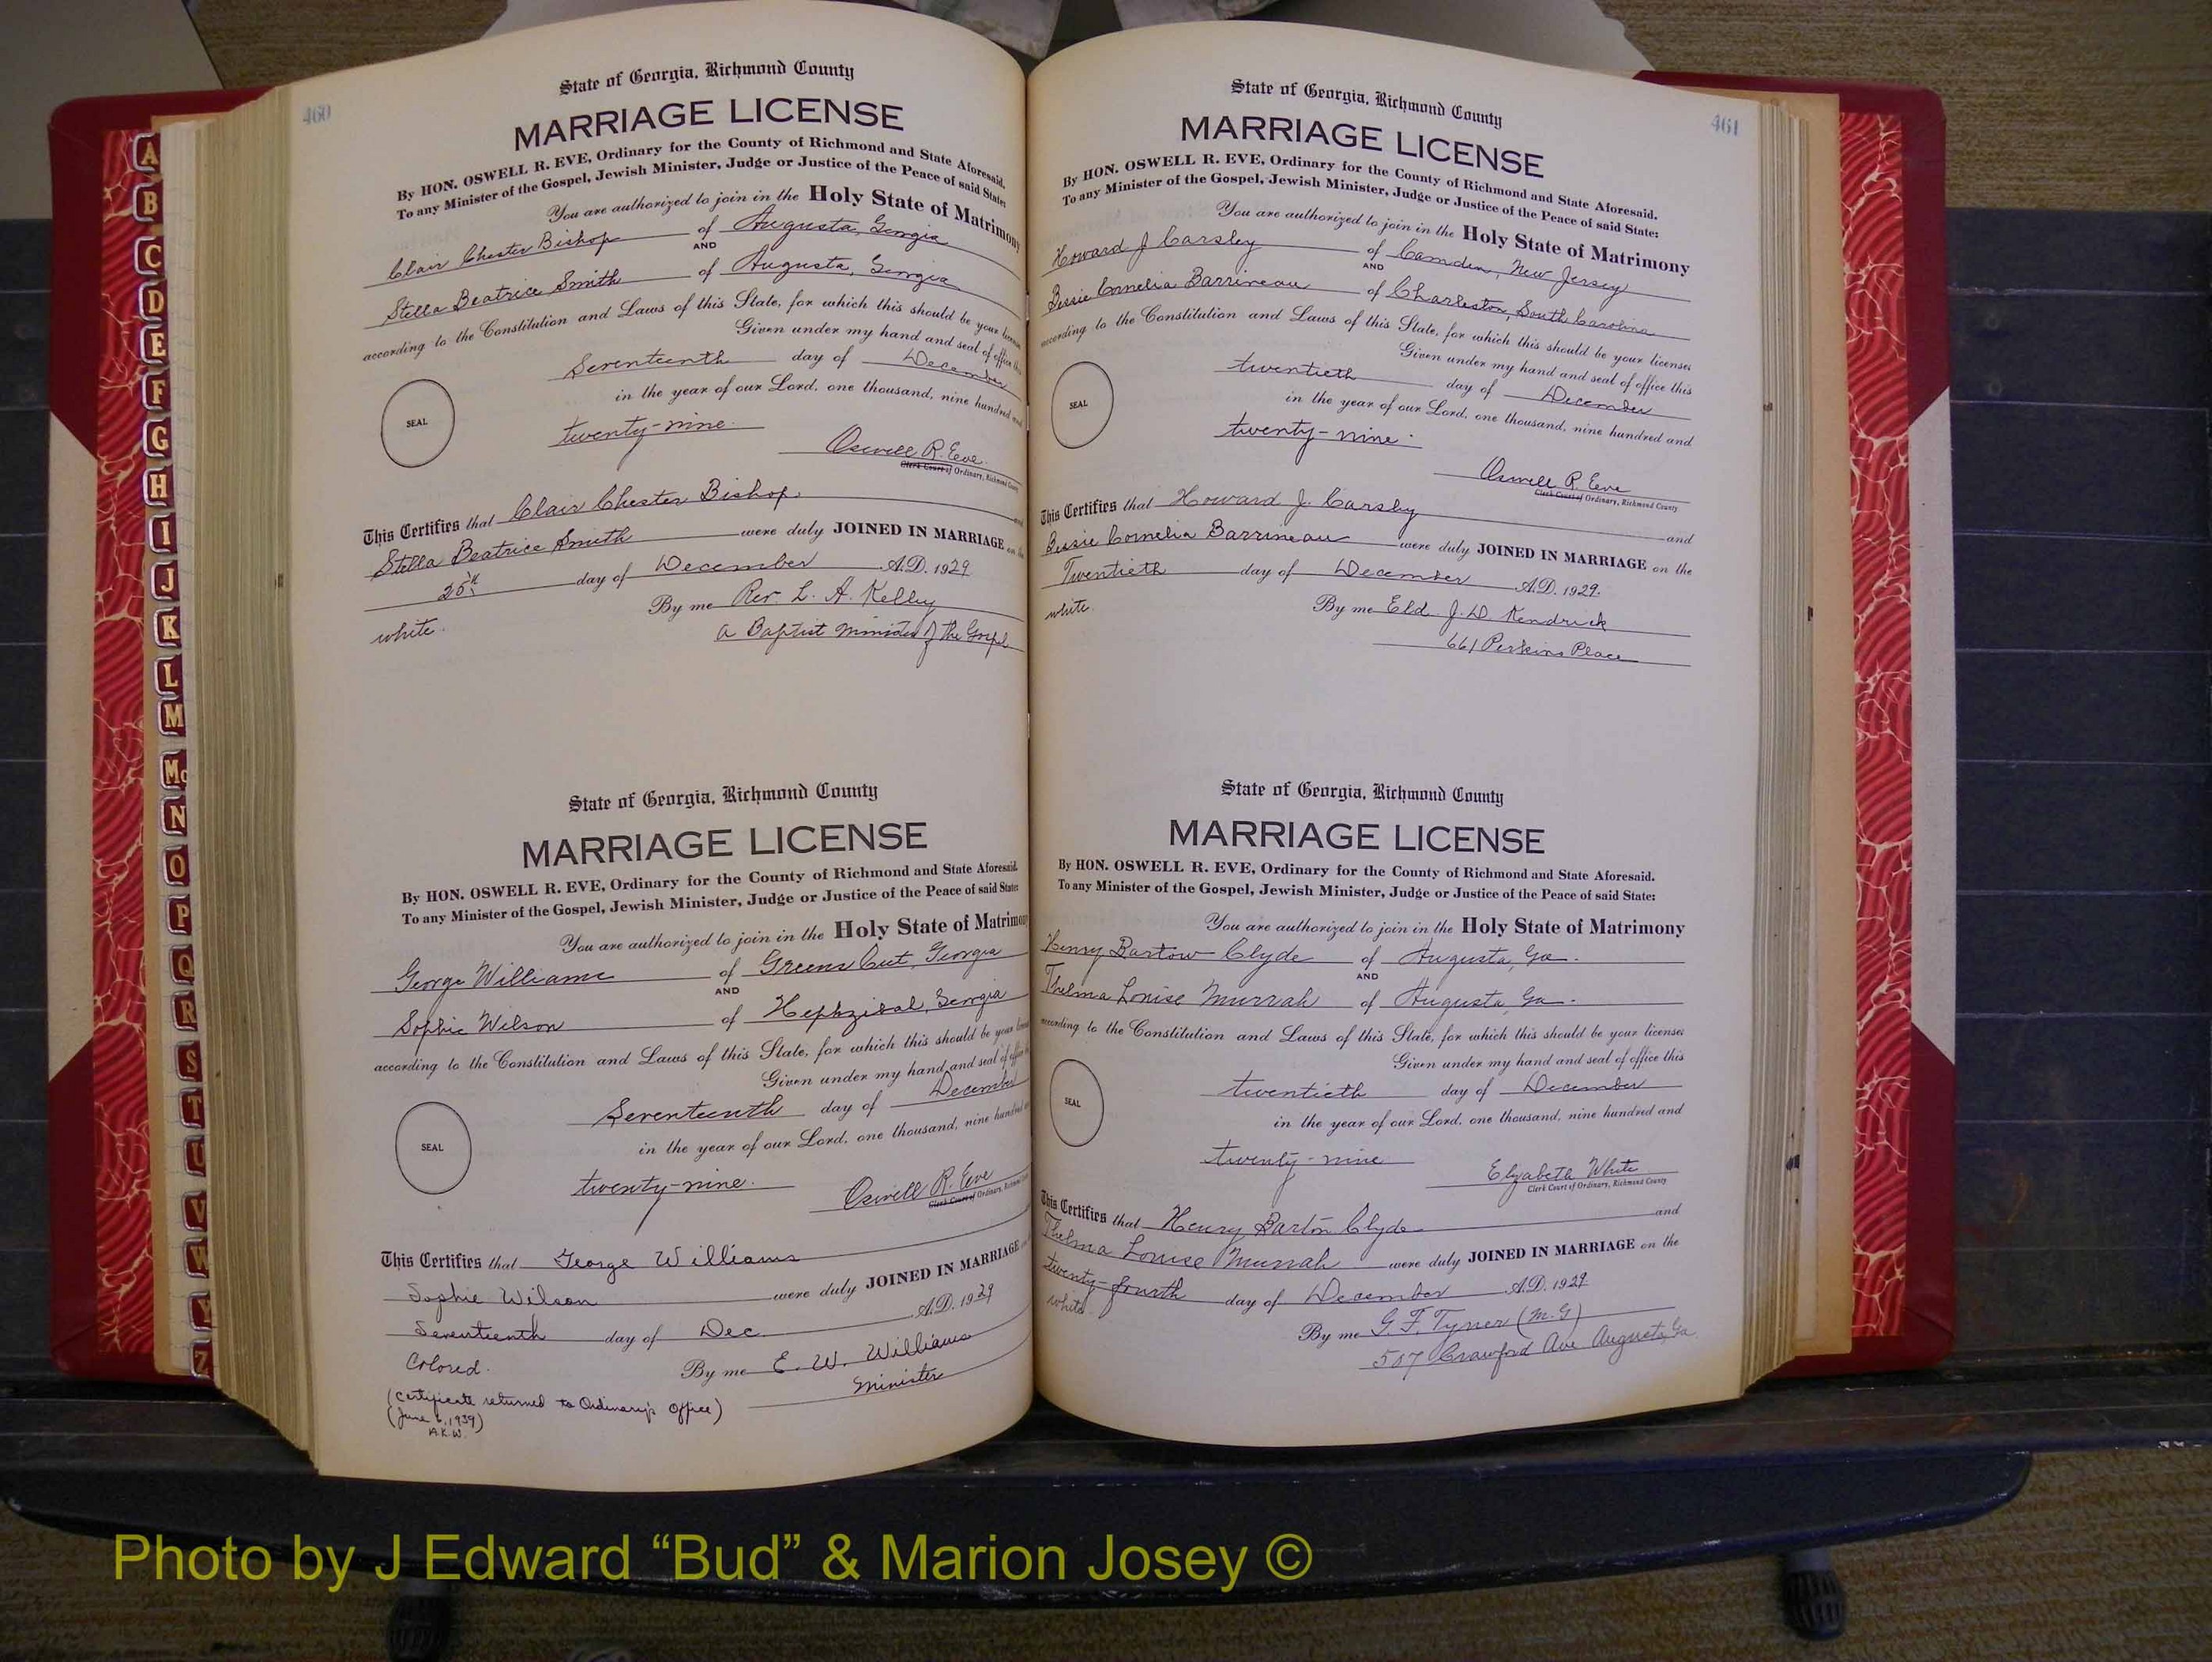 460
State of Georgia, Richmond County
MARRIAGE LICENSE
By HON. OSWELL R. EVE, Ordinary for the County of Richmond and State Aforesaid.
To any Minister of the Gospel, Jewish Minister, Judge or Justice of the Peace of said State:
You are authorized to join in the Holy State of Matrimony
Clair Chester Bishop of Augusta, Georgia
AND
Stella Beatrice Smith of Augusta, Georgia
according to the Constitution and Laws of this State, for which this should be your license
Given under my hand and seal of office this
Seventeenth day of December
in the year of our Lord, one thousand, nine hundred and
SEAL
twenty-nine.
Oswell R. Eve
Clerk Court of Ordinary, Richmond County
This Certifies that Clair Chester Bishop
Stella Beatrice Smith were duly JOINED IN MARRIAGE on the
25th day of December A.D. 1929
By me Rev. L. A. Kelley
white. a Baptist minister of the Gospel
State of Georgia, Richmond County
MARRIAGE LICENSE
By HON. OSWELL R. EVE, Ordinary for the County of Richmond and State Aforesaid.
To any Minister of the Gospel, Jewish Minister, Judge or Justice of the Peace of said State:
You are authorized to join in the Holy State of Matrimony
George Williams of Greens Cut, Georgia
AND
Sophie Wilson of Hephzibah, Georgia
according to the Constitution and Laws of this State, for which this should be your license
Given under my hand and seal of office
Seventeenth day of December
in the year of our Lord, one thousand, nine hundred
SEAL
twenty-nine.
Oswell R. Eve
Clerk Court of Ordinary, Richmond
This Certifies that George Williams
Sophie Wilson were duly JOINED IN MARRIAGE
Seventeenth day of Dec. A.D. 1929
Colored. By me E. W. Williams
Minister
(Certificate returned to Ordinary's Office)
(June 6, 1939)
A.K.W.
461
State of Georgia, Richmond County
MARRIAGE LICENSE
By HON. OSWELL R. EVE, Ordinary for the County of Richmond and State Aforesaid.
To any Minister of the Gospel, Jewish Minister, Judge or Justice of the Peace of said State:
You are authorized to join in the Holy State of Matrimony
Howard J Carsley of Camden, New Jersey
AND
Bessie Cornelia Barrineau of Charleston, South Carolina
according to the Constitution and Laws of this State, for which this should be your licenses
Given under my hand and seal of office this
twentieth day of December
in the year of our Lord, one thousand, nine hundred and
SEAL
twenty-nine.
Oswell R. Eve
Clerk Court of Ordinary, Richmond County
This Certifies that Howard J. Carsley
and
Bessie Cornelia Barrineau were duly JOINED IN MARRIAGE on the
Twentieth day of December A.D. 1929.
white. By me Eld. J. D. Kendrick
661 Perkins Place
State of Georgia, Richmond County
MARRIAGE LICENSE
By HON. OSWELL R. EVE, Ordinary for the County of Richmond and State Aforesaid.
To any Minister of the Gospel, Jewish Minister, Judge or Justice of the Peace of said State:
You are authorized to join in the Holy State of Matrimony
Henry Bartow Clyde of Augusta, Ga.
AND
Thelma Louise Murrah of Augusta, Ga.
according to the Constitution and Laws of this State, for which this should be your licenses
Given under my hand and seal of office this
twentieth day of December
in the year of our Lord, one thousand, nine hundred and
SEAL
twenty-nine
Elizabeth White
Clerk Court of Ordinary, Richmond County
This Certifies that Henry Barton Clyde and
Thelma Louise Murrah were duly JOINED IN MARRIAGE on the
twenty-fourth day of December A.D. 1929
white. By me G. F. Tyner (M.G)
507 Crawford Ave Augusta, Ga.
A
B
C
D
E
F
G
H
I
J
K
L
M
Mc
N
O
P
Q
R
S
T
U
V
W
Y
Z
Photo by J Edward “Bud” & Marion Josey ©